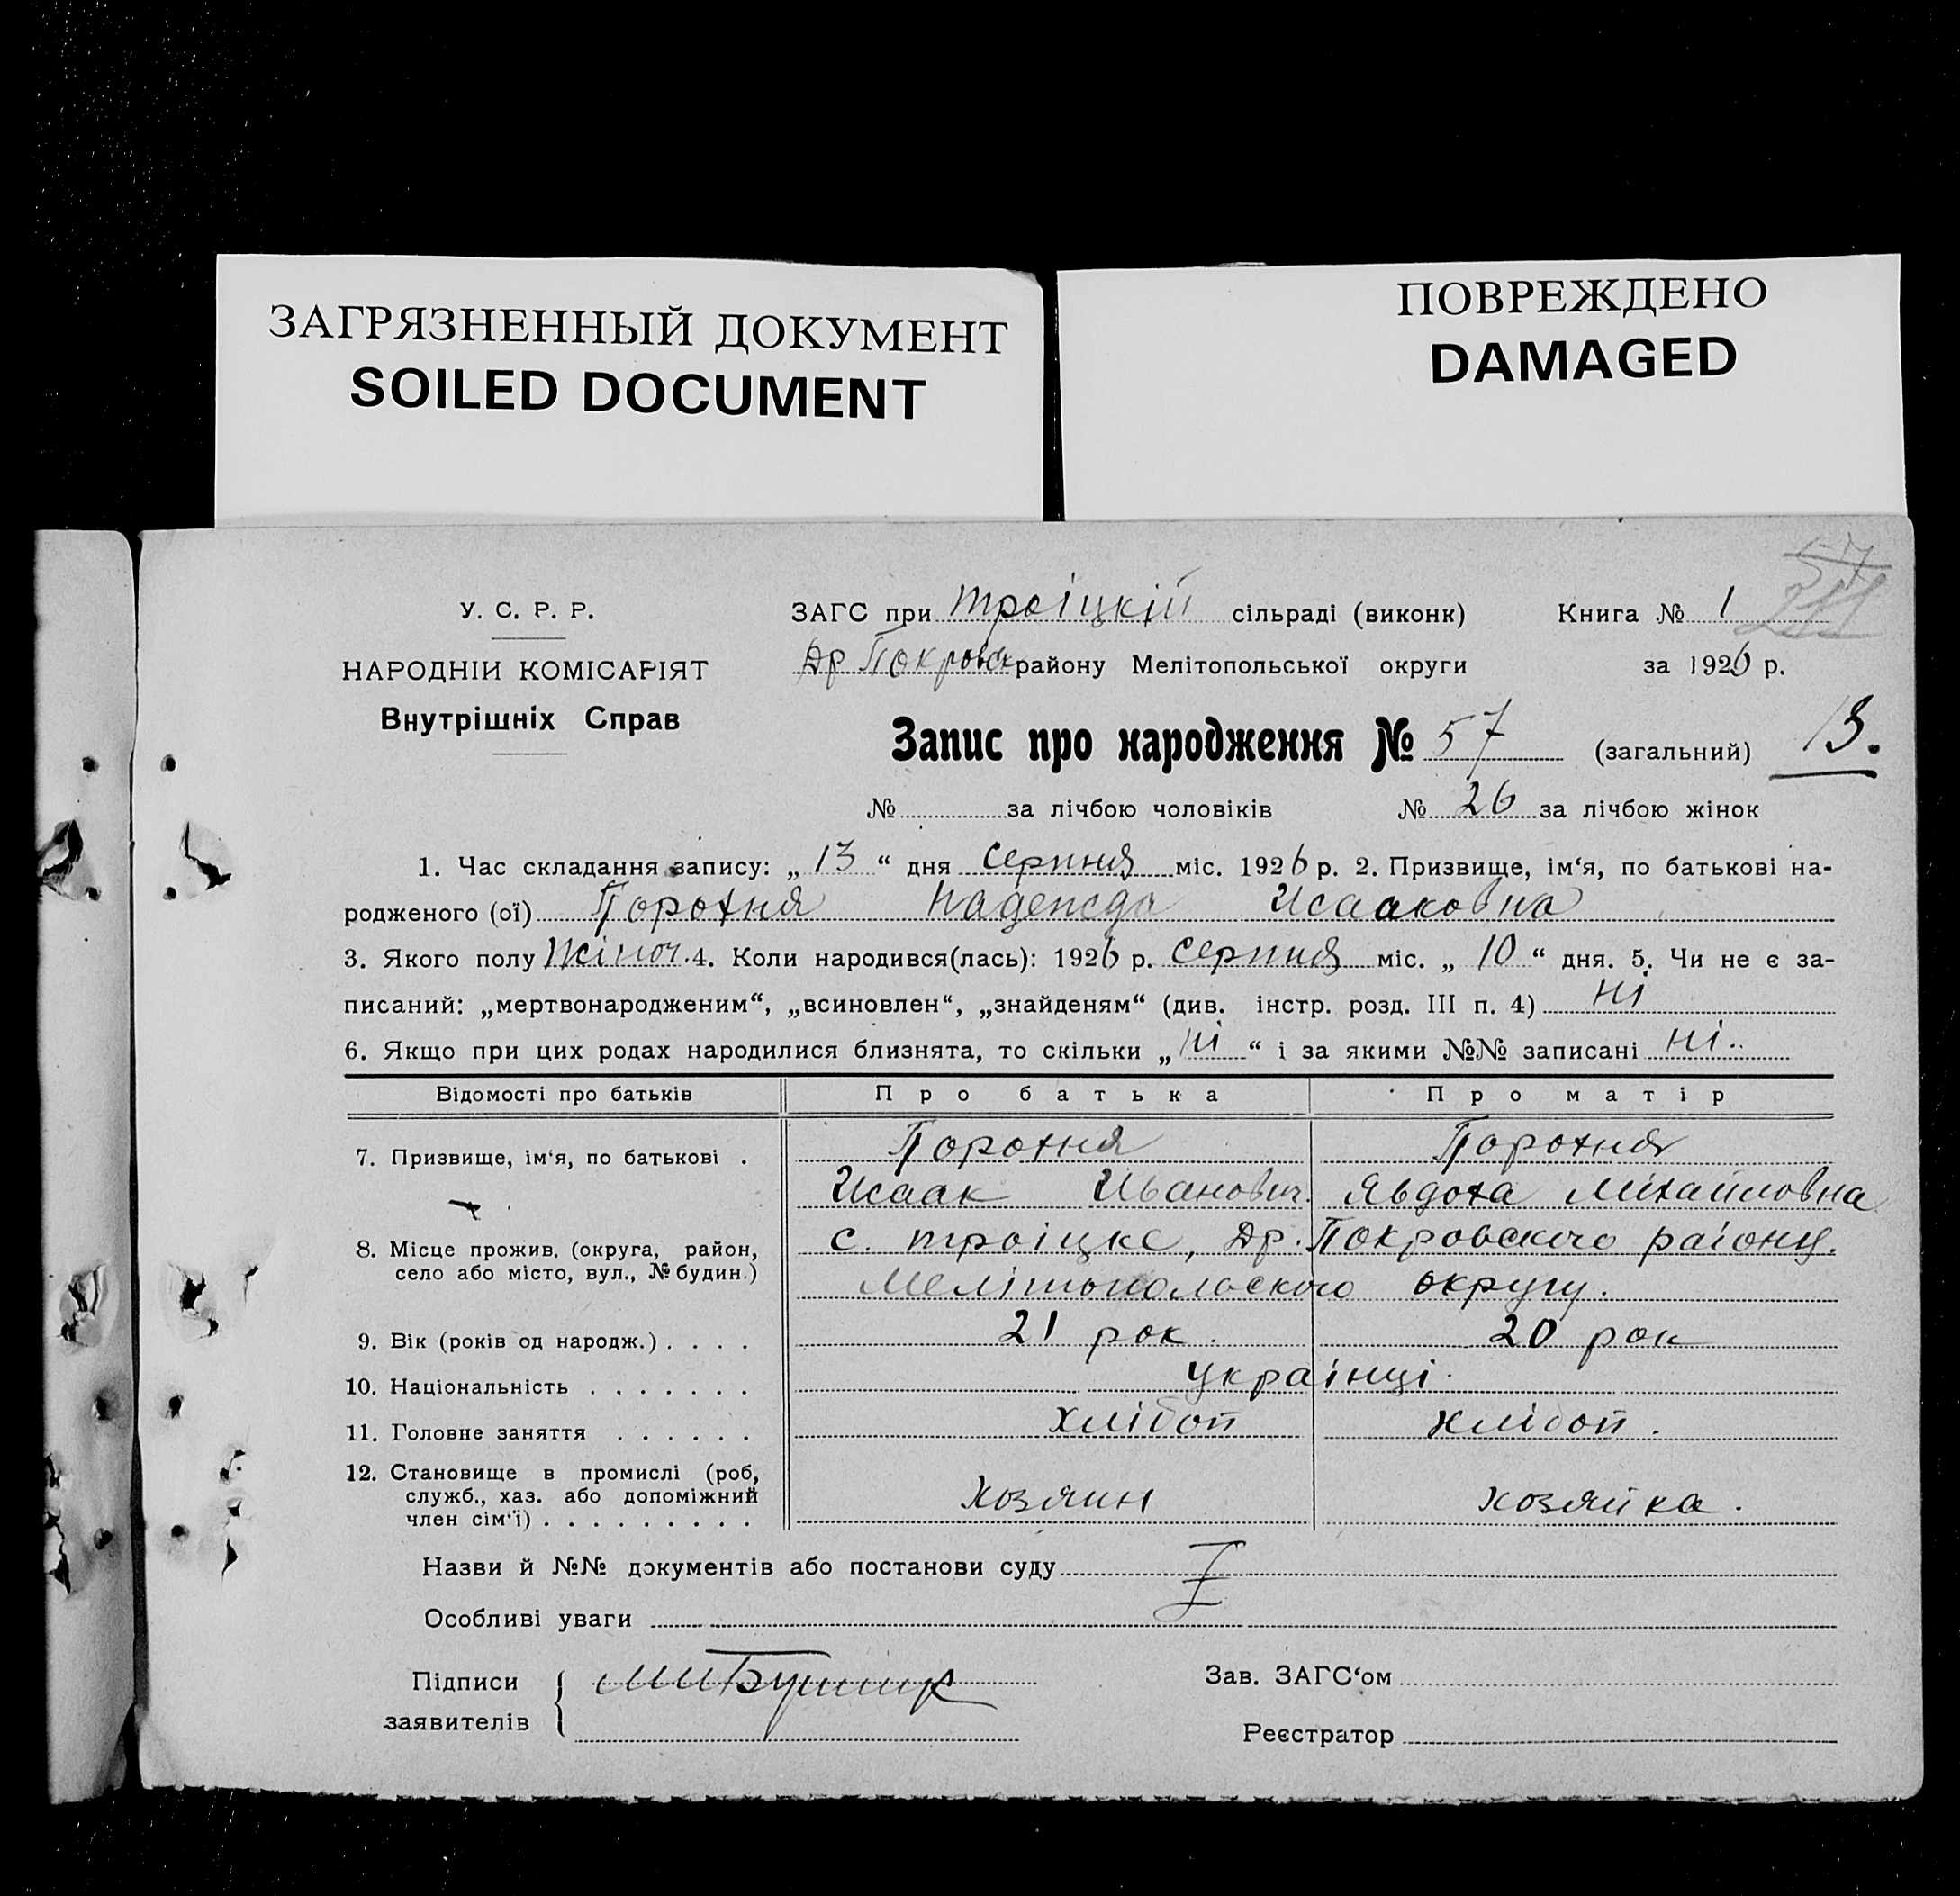 ЗАГРЯЗНЕННЫЙ ДОКУМЕНТ
SOILED DOCUMENT
ПОВРЕЖДЕНО
DAMAGED
У. С. Р. Р.
НАРОДНІЙ КОМІСАРІЯТ
Внутрішніх Справ
ЗАГС при Троіцкій сільраді (виконк) Книга № 1
Др Покровск району Мелітопольської округи за 1926 р.
Запис про народження № 57 (загальний) 13.
№ за лічбою чоловіків № 26 за лічбою жінок
1. Час складання запису: „ 13 “ дня Серпня міс. 1926 р. 2. Призвище, ім‘я, по батькові на-
родженого (ої) Порохня Надежда Исааковна
3. Якого полу Жіноч. 4. Коли народився(лась): 1926 р. Серпня міс. „ 10 “ дня. 5. Чи не є за-
писаний: „мертвонародженим“, „всиновлен“, „знайденям“ (див. інстр. розд. III п. 4) ні
6. Якщо при цих родах народилися близнята, то скільки „ ні “ і за якими №№ записані ні.
Відомості про батьків Про батька Про матір
7. Призвище, ім‘я, по батькові . Порохня Порохня
Исаак Иванович. Явдоха Михайловна
8. Місце прожив. (округа, район, с. Троіцке, Др. Покровского району.
село або місто, вул., № будин.)
Мелітопольского округу.
9. Вік (років од народж.) . . . . 21 рок. 20 рок
10. Національність . . . . . . . украінці.
11. Головне заняття . . . . . . хлібоп хлібоп.
12. Становище в промислі (роб,
служб., хаз. або допоміжний хозяин хозяйка.
член сім‘ї) . . . . . . . . .
Назви й №№ документів або постанови суду
Особливі уваги
Підписи
заявителів
Зав. ЗАГС‘ом
Реєстратор